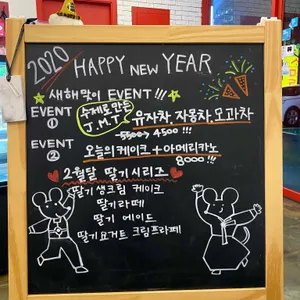 2020 HAPPY NEW YEAR
새해 맞이 EVENT !!!
EVENT ① 수제로 만든 J.M.T 유자차, 자몽차, 모과차
5500 → 4500 !!!
EVENT ② 오늘의 케이크 + 아메리카노
8000 !!!
2월달 딸기 시리즈
딸기 생크림 케이크
딸기라떼
딸기 에이드
딸기요거트 크림프라페